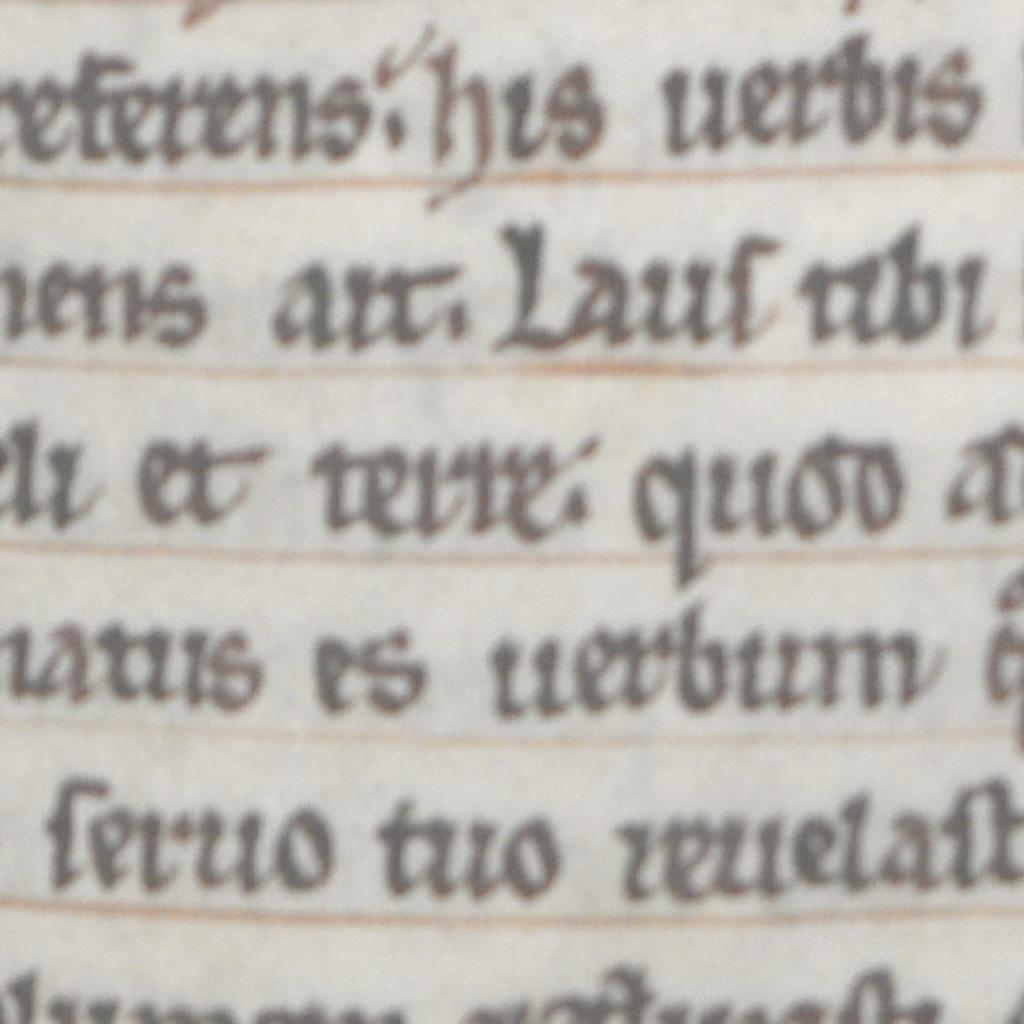 referens. his uerbis
mens ait. Laus tibi
celi et terre. quod a
natus es uerbum
seruo tuo reuelast